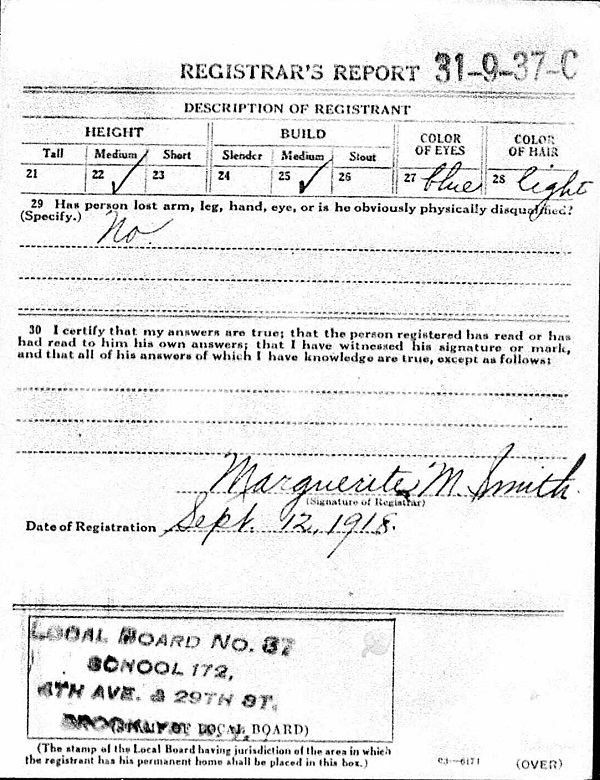 REGISTRAR'S REPORT 31-9-37-C
DESCRIPTION OF REGISTRANT
HEIGHT BUILD COLOR OF EYES COLOR OF HAIR
Tall Medium Short Slender Medium Stout
21 22 ✓ 23 24 25 ✓ 26 27 blue 28 light
29 Has person lost arm, leg, hand, eye, or is he obviously physically disqualified?
(Specify.) No.
30 I certify that my answers are true; that the person registered has read or has
had read to him his own answers; that I have witnessed his signature or mark,
and that all of his answers of which I have knowledge are true, except as follows:
Marguerite M. Smith
(Signature of Registrar)
Date of Registration Sept. 12, 1918.
LOCAL BOARD No. 37
SCHOOL 172,
4TH AVE. & 29TH ST.
BROOKLYN
(STAMP OF LOCAL BOARD)
(The stamp of the Local Board having jurisdiction of the area in which
the registrant has his permanent home shall be placed in this box.)
(OVER)